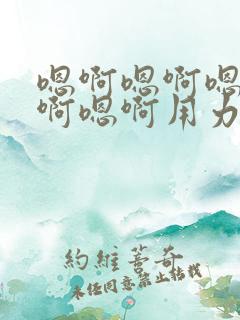 嗯啊嗯啊嗯
啊嗯啊用力
約維蓄奇
未经同意禁止转载